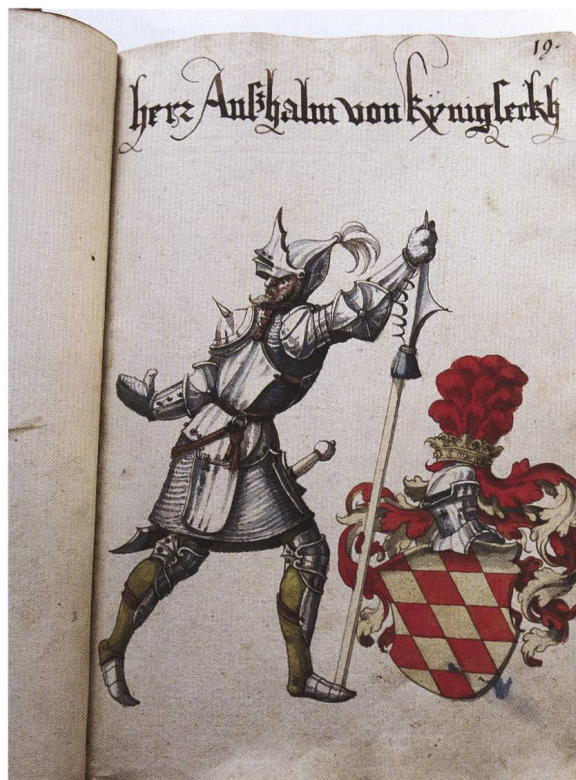 19.
herr Anßhalm von kÿnigseckh